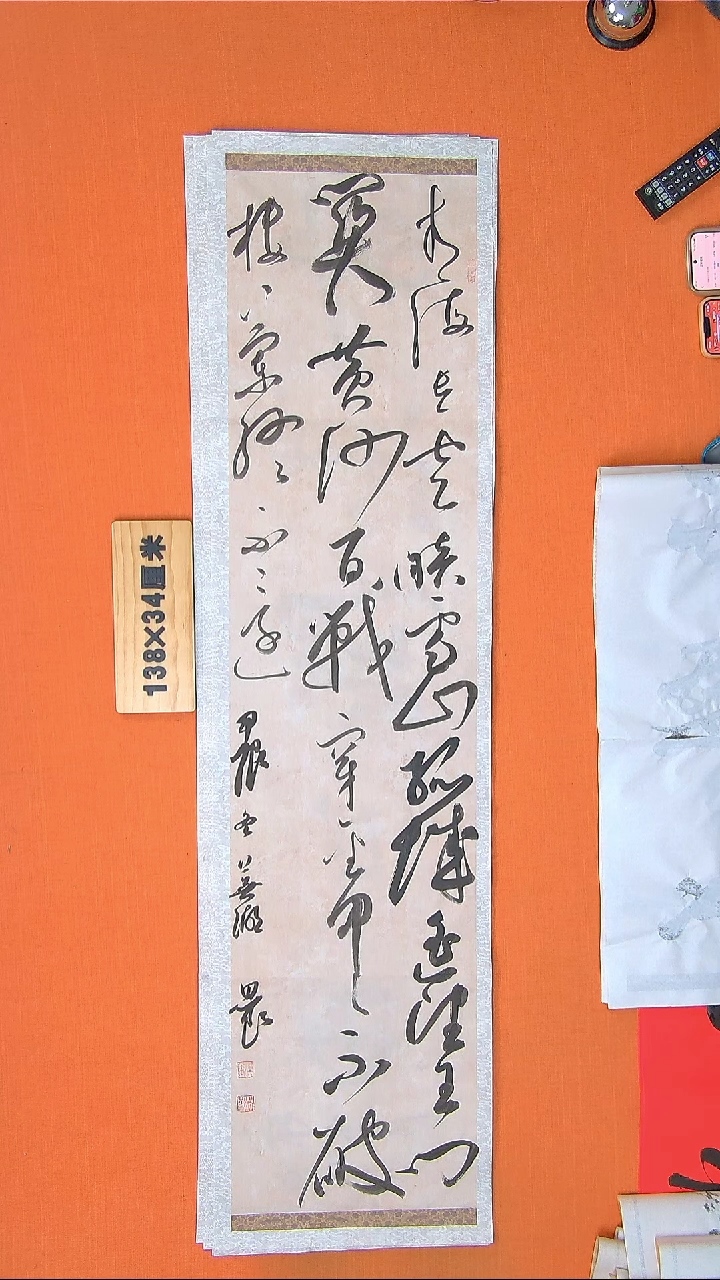 青海长云暗雪山孤城遥望玉门
關黄沙百戰穿金甲不破
楼兰终不还
138×34厘米